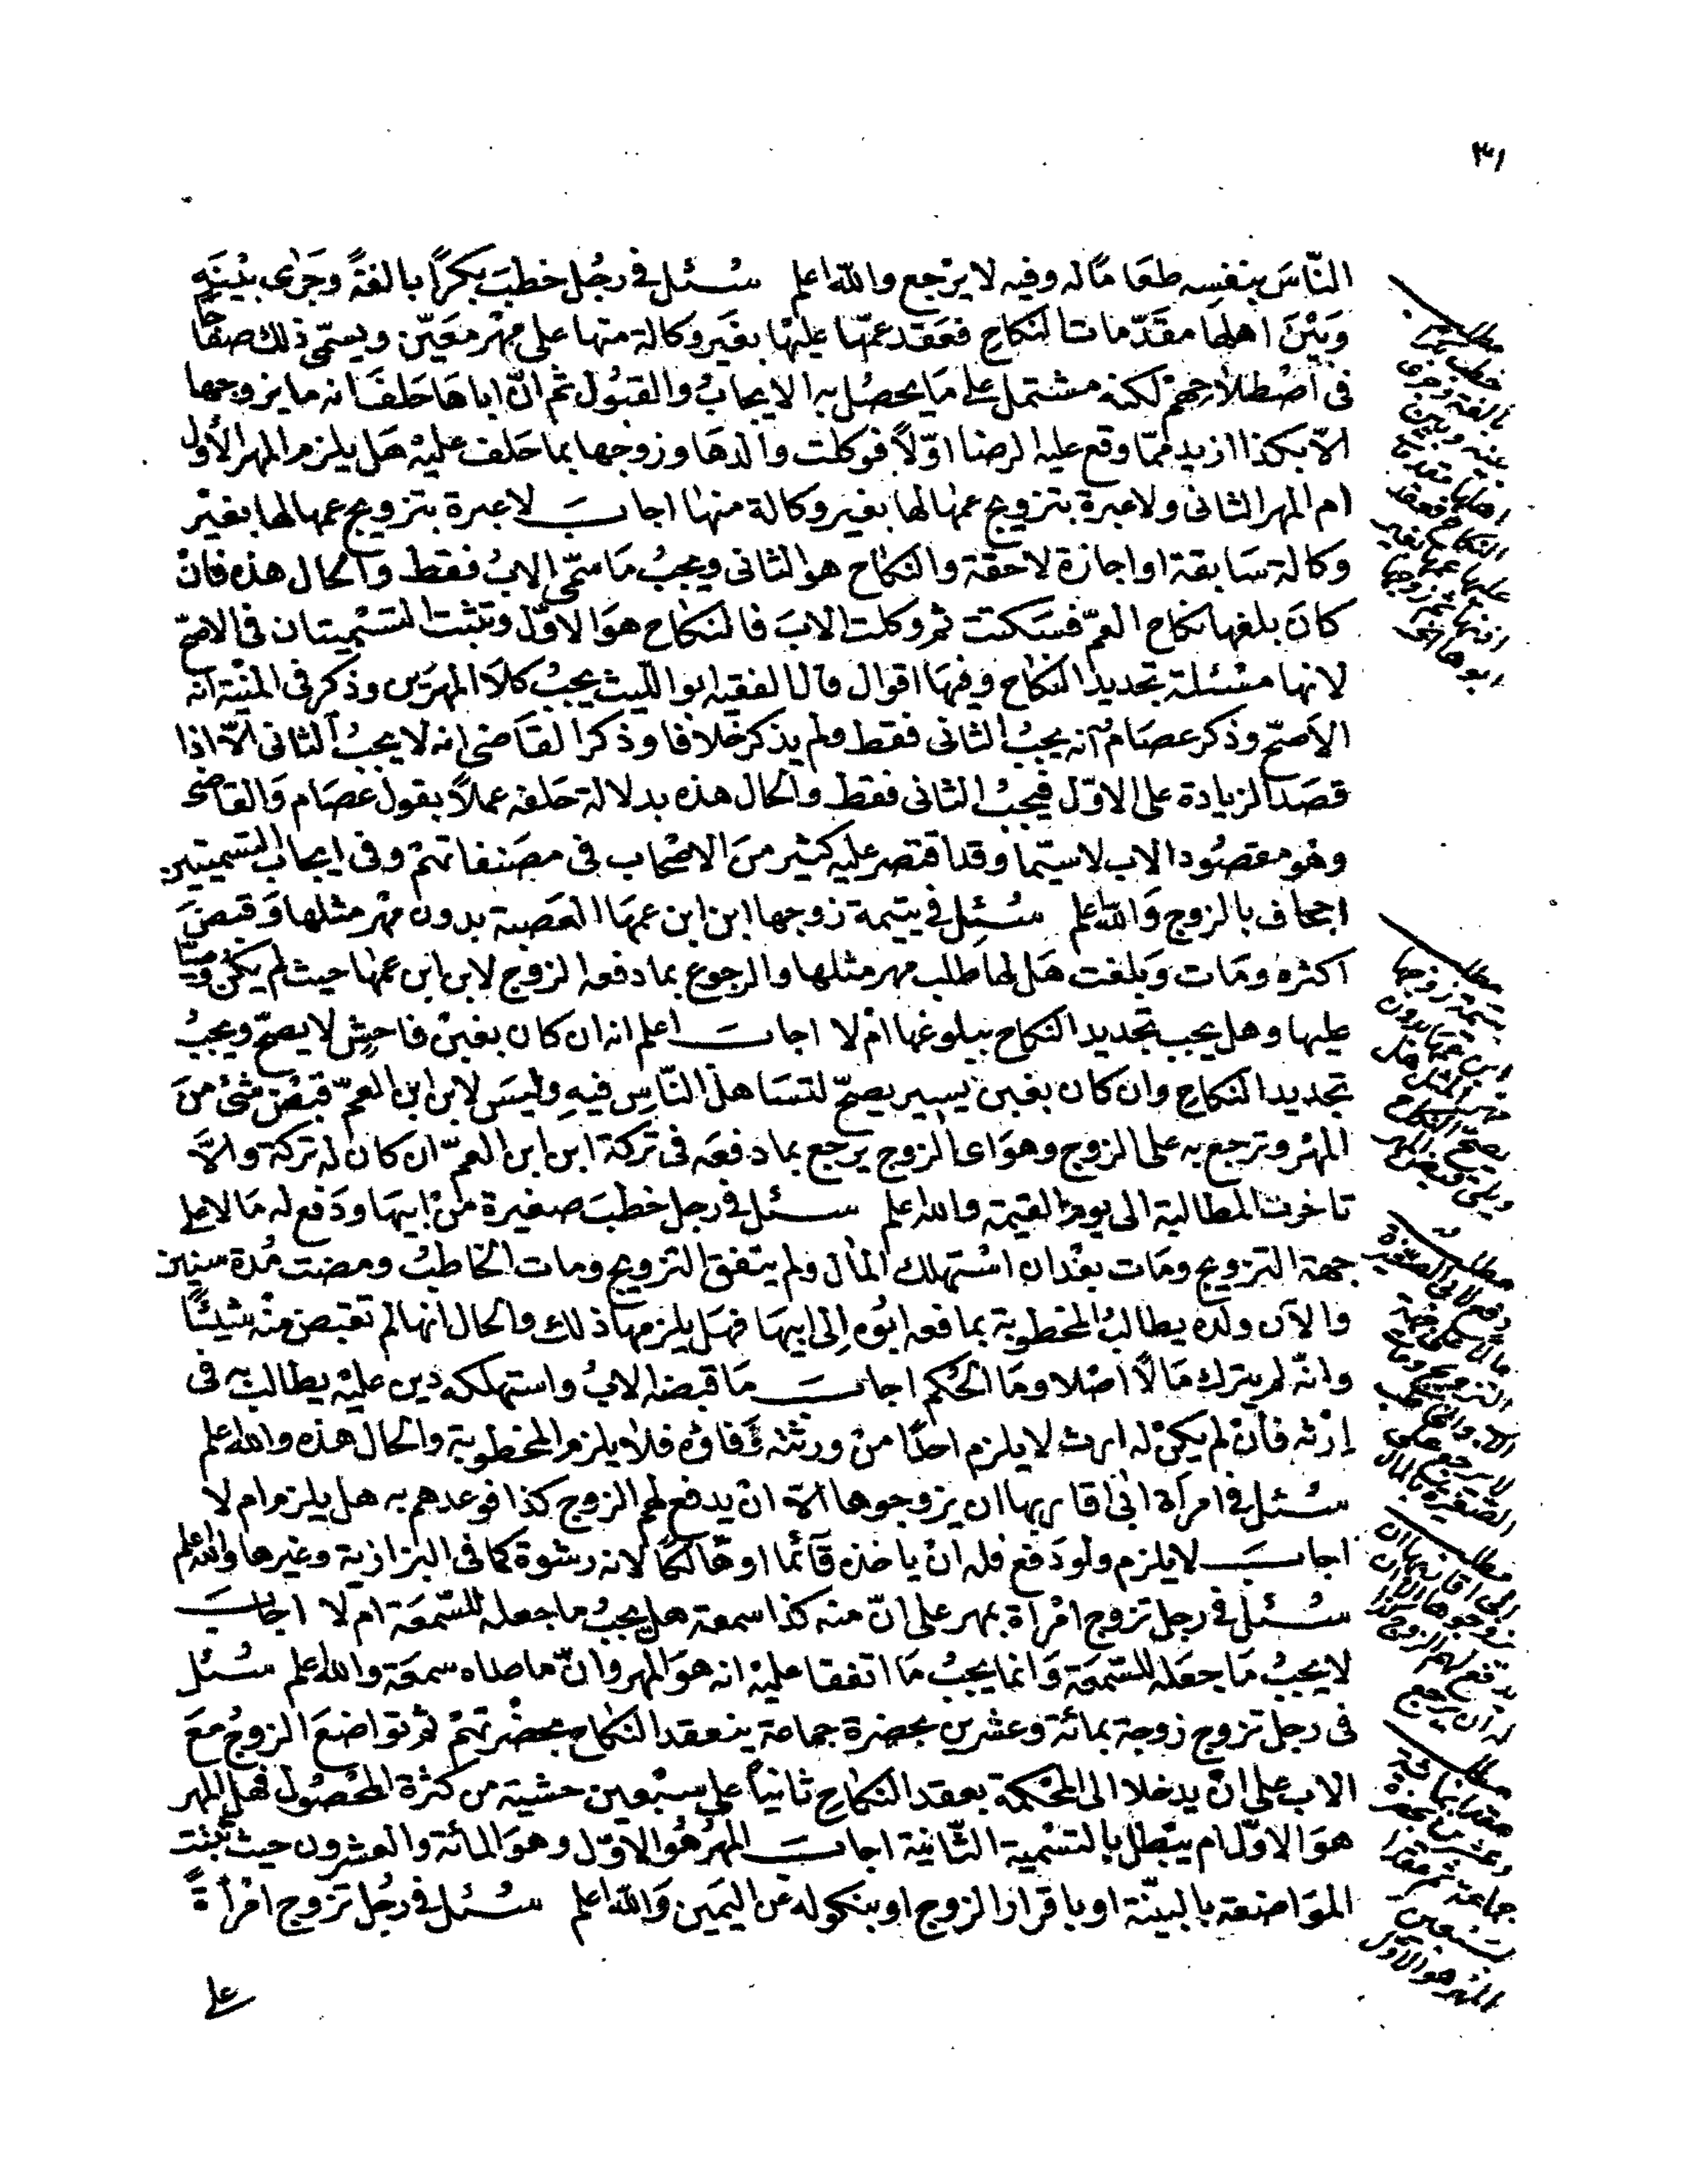 ٣١
النّاسَ بنفسِه طعَامًا له وفيه لا يرْجع والله اعلم سُئل في رجُل خطبَ بكرًا بالغةً وجَرٰى بيْنَهِ
وَبيْنَ اهلهَا مقَدّمات النكاحِ فعَقد عمّها عليْها بغَير وكالة منها على مهْر معَيّن ويسمّى ذلك صفاحًا
فى اصْطلاحِهمْ لكنه مشتمل على مَا يحصُل به الايجابُ والقبُول ثم انّ اباهَا حَلفَ انه ما يزوجها
الاّ بكذا ازيد ممّا وقع عليه الرضا اوّلاً فوكلت والدهَا وزوجها بما حَلف عليْه هَل يلزم المهر الأول
ام المهر الثانى ولا عبرة بتزويج عمها لها بغير وكالة منهَا اجابَ لا عبرة بتزويج عمها لها بغيْر
وكالة سَابقة او اجازة لاحقة والنكاح هو الثانى ويجبُ مَا سمّى الابُ فقط والحال هذه فانْ
كانَ بلغها نكاح العمّ فسَكتت ثم وكلت الابَ فالنكاح هوَ الاوّل وتثبت التسْميتان فى الاصحّ
لانها مسْئلة تجديد النكاح وفيهَا اقوال قال الفقيه ابو الليث يجبُ كلاَ المهرَين وذكر فى المنية انه
الاَصحّ وذكر عصَام انه يجبُ الثانى فقط ولم يذكر خلافا وذكر القاضى انه لا يجبُ الثانى الاّ اذا
قصَد الزيادة على الاوّل فيجبُ الثانى فقط والحال هذه بدلالة حَلفه عملاً بقول عصَام وَالقاضى
وهو مقصُود الاب لاسيّما وقد اقتصر عليه كثير منَ الاصْحاب فى مصَنفاتهمْ وفى ايجاب التسميتين
اجحاف بالزوج وَالله اعلم سُئِل في يتيمة زوجها ابن ابن عمهَا العَصبة بدون مهْر مثلها وَقبضَ
اكثره ومَات وَبلغت هَل لها طلب مهر مثلها والرجوع بما دفعه الزوج لابن ابن عمها حيث لم يكن وصيًّا
عليها وهل يجب تجديد النكاح ببلوغها امْ لا اجابَ اعلم انه ان كان بغبنْ فاحِشٍ لا يصحّ ويجبُ
تجديد النكاح وان كان بغبن يسير يصحّ لتسَاهل النّاسِ فيهِ وليسَ لابن ابن العمّ قبْض شئ منَ
المهْر وترجع به على الزوج وهوَ اى الزوج يرجع بما دفعَه فى تركة ابن ابن العمّ ان كان له تركة والاَّ
تاخرت المطالبة الى يوم القيمة والله اعلم سئل في رجل خطبَ صغيرة منْ ابيهَا ودَفع له مَالا على
جهة التزويج ومَات بعْد ان اسْتهلك المال ولم يتفق التزويج ومات الخاطبُ ومضت مُدة سنين
والآن ولده يطالبُ المخطوبة بما دفعه ابُوه اِلى ابيهَا فهَل يلزمها ذلك والحال انها لم تقبض منْه شيئًا
وانّه لم يترك مَالاً اصْلا ومَا الحُكم اجابَ مَا قبضه الابُ واستهلكه دين عليْه يطالبُ به فى
اِرْثه فانْ لم يكنْ له ارث لا يلزم احدًا منْ ورثته وَفاؤه فلا يلزم المخطوبة والحال هذه والله اعلم
سُئل في امرأة ابٰى اقاربها ان يزوجوها الاّ انْ يدفع لهم الزوج كذا فوعدهم به هل يلزم ام لا
اجابَ لا يلزم ولو دَفع فله انْ ياخذه قائمًا او هَالكًا لانه رشوة كما فى البزازية وغيرها والله اعلم
سُئل في رجل تزوج امْرأة بمهر على انّ منه كذا سمعة هل يجبُ ما جعله للسّمعَة ام لا اجابَ
لا يجبُ مَا جعَله للسّمعَة وَانما يجبُ مَا اتفقا عليْه انه هوَ المهر وانّ ما عداه سمعَة والله اعلم سُئل
فى رجل تزوج زوجة بمائة وعشرين بحضرة جماعة ينعقد النكاح بحضْرتهمْ ثم تواضعَ الزوجُ معَ
الاب على انْ يدخلا الى المحْكمة بعقد النكاحِ ثانياً على سبْعين خشية من كثرة المحْصُول فهل المهر
هوَ الاوّل ام يبْطل بالتسْمية الثّانية اجابَ المهْر هُوَ الاوّل وهوَ المائة والعشرون حيث ثبتت
الموَاضعة بالبيّنة او باقرار الزوج او بنكوله عن اليمَين وَالله اعلم سُئل في رجُل تزوج امْرأةً
على
مطلب
خطب بكرا
بالغة وجرى
بينه وبين
اهلها مقدمات
النكاح فعقد
عليها عمها بغير
اذنها ثم زوجها
ابوها الخ
مطلب
يتيمة زوجها
ابن عمها بدون
مهر المثل هل
يصح النكاح
مطلب
دفع لابى الصغيرة
مالا على جهة
التزويج ومات
الاب والخاطب
لا يرجع على
الصغيرة بالمال
مطلب
ابى اقاربها ان
يزوجوها الا ان
يدفع لهم الزوج كذا
له ان يرجع
مطلب
عقدا بمائة
وعشرين بحضرة
جماعة ثم عقدا
بسبعين
المهر هو الاول